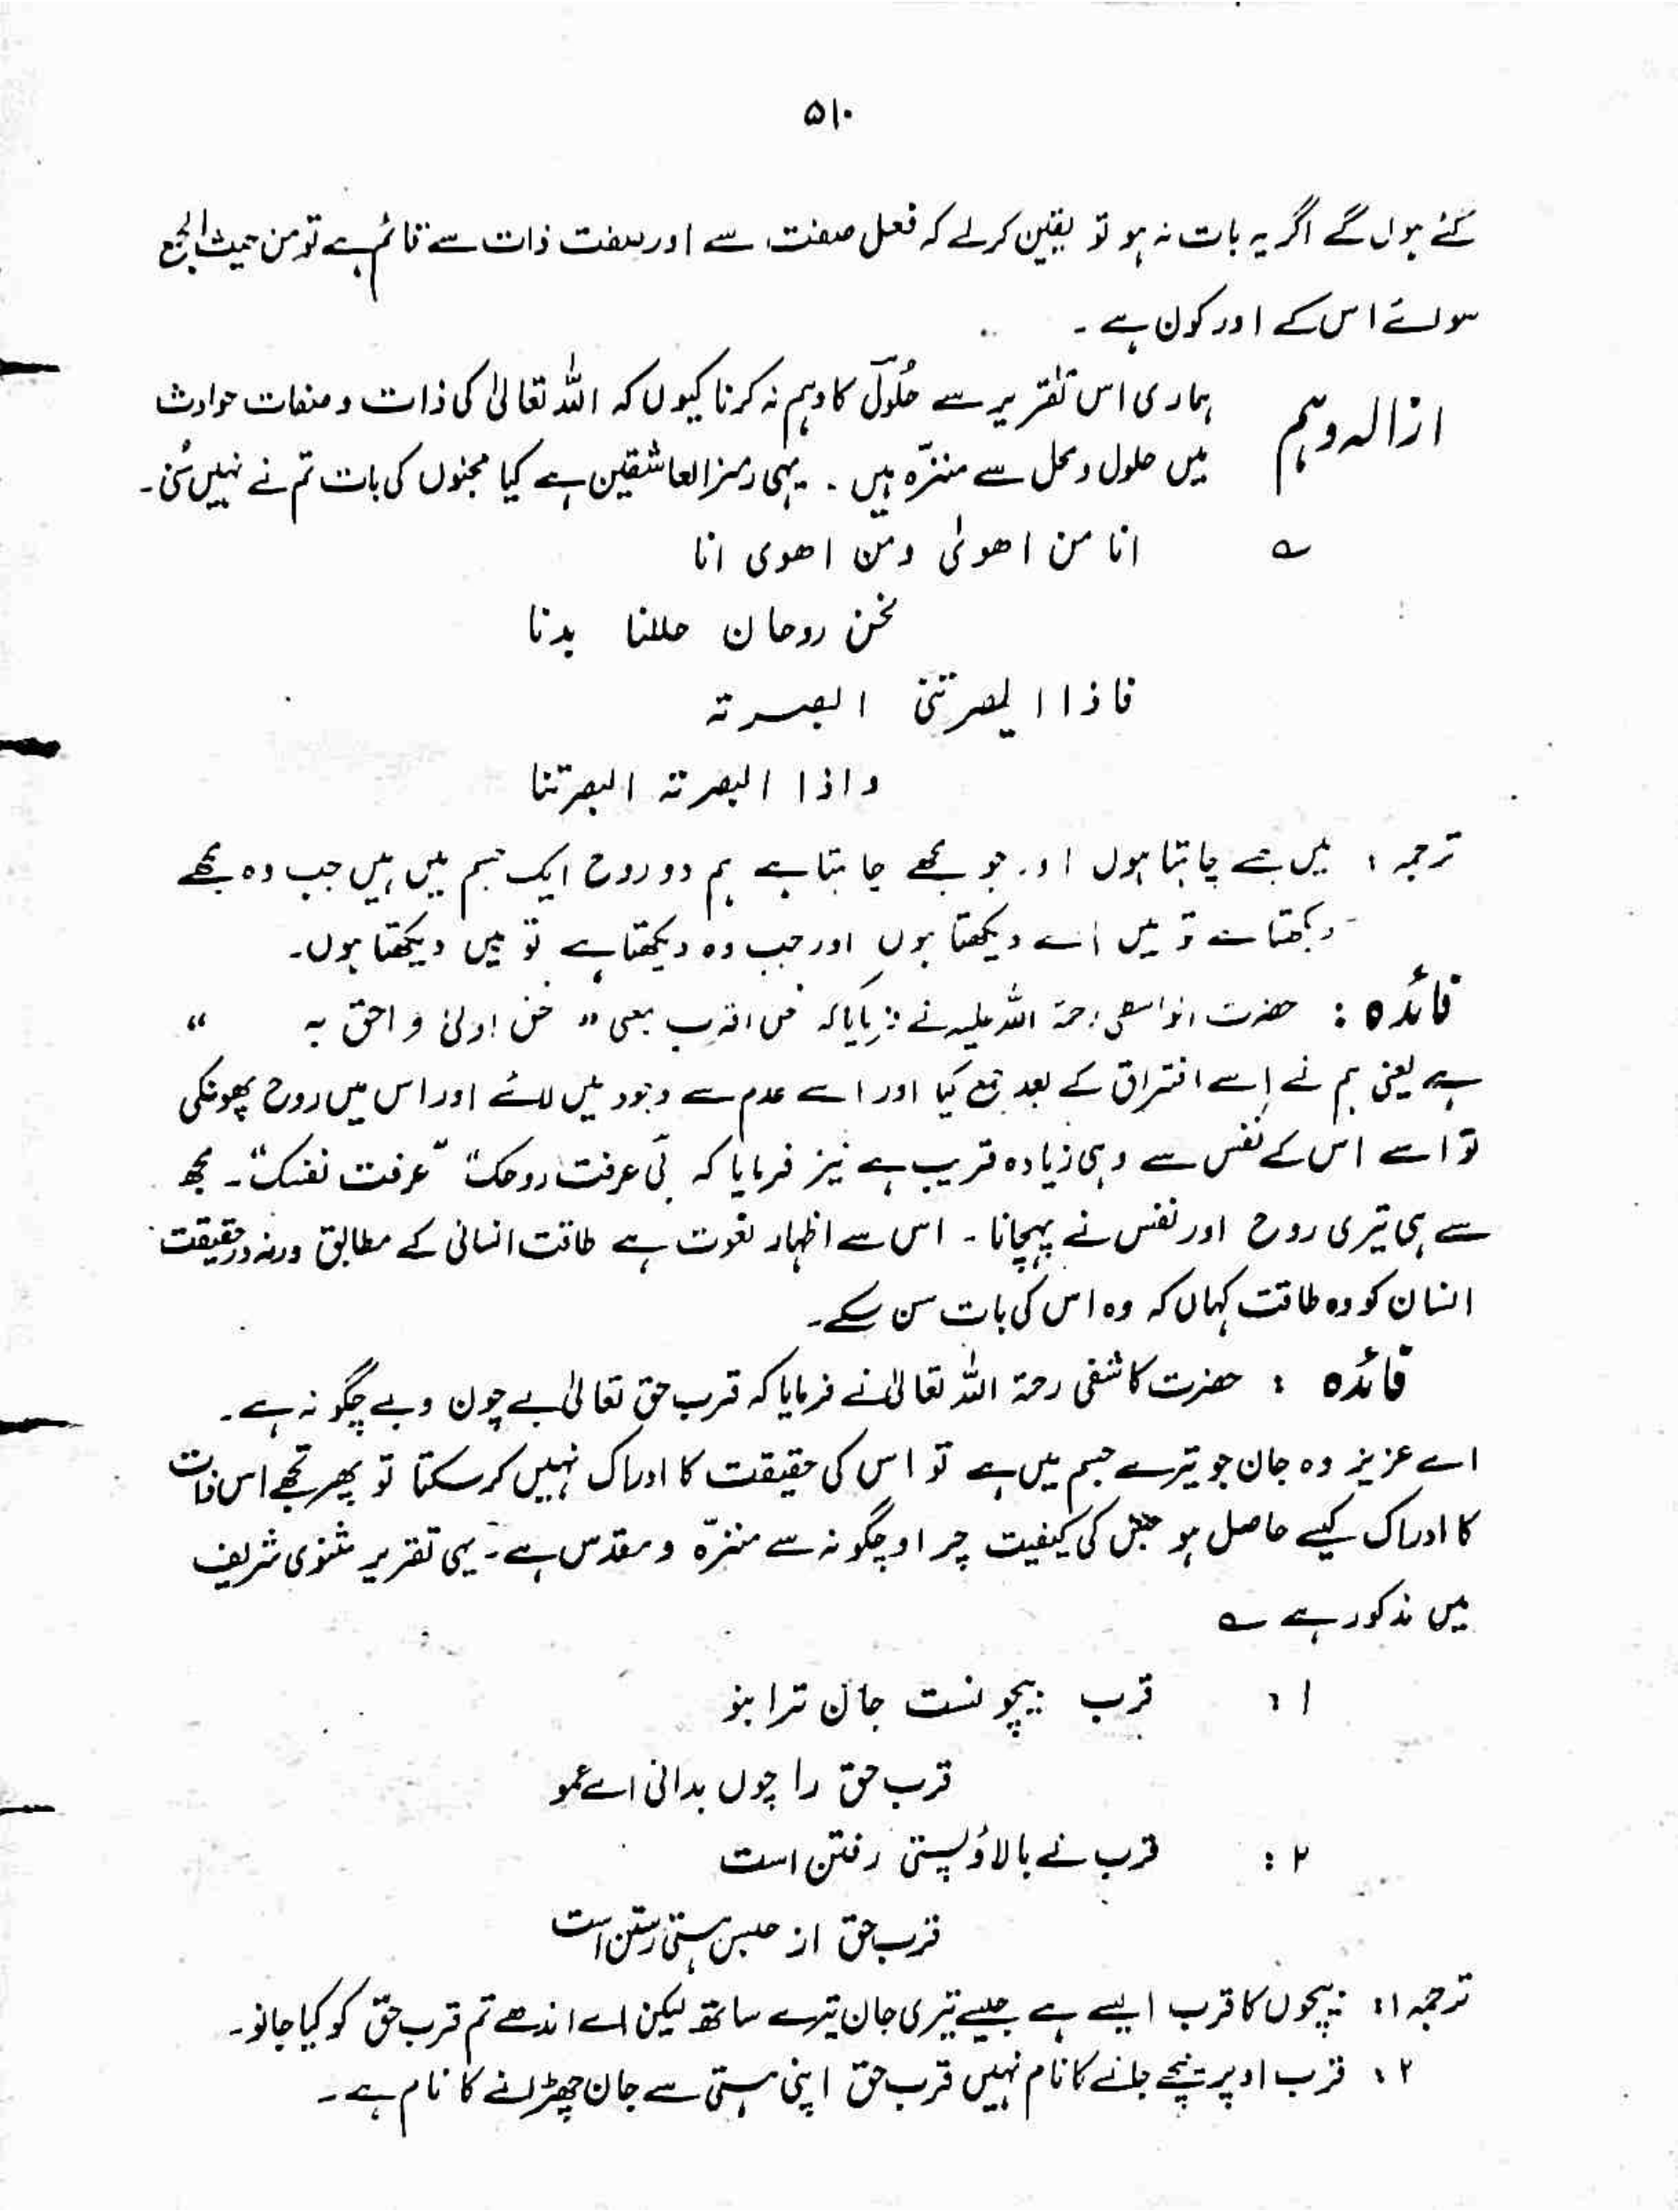 ۵۱۰
کئے ہوں گے اگر یہ بات نہ ہو تو یقین کر لے کہ فعل صفت سے اور صفت ذات سے قائم ہے تو من حیث الجمع
سوائے اس کے اور کون ہے ۔
ازالہ وہم
ہماری اس تقریر سے حُلُول کا وہم نہ کرنا کیوں کہ اللہ تعالیٰ کی ذات و صفات حوادث
میں حلول و محل سے منزّہ ہیں ۔ یہی رمز العاشقین ہے کیا مجنوں کی بات تم نے نہیں سُنی۔
؎ انا من اھویٰ ومن اھوی انا
نحن روحان حللنا بدنا
فاذا ابصرتنی ابصرتہ
واذا ابصرتہ ابصرتنا
ترجمہ : میں جسے چاہتا ہوں اور جو مجھے چاہتا ہے ہم دو روح ایک جسم میں ہیں جب وہ مجھے
دیکھتا ہے تو میں اسے دیکھتا ہوں اور جب وہ دیکھتا ہے تو میں دیکھتا ہوں۔
فائدہ : حضرت رحمۃ اللہ علیہ نے فرمایا کہ اقرب بمعنی " نحن اولیٰ و احق بہ "
ہے یعنی ہم نے اسے افتراق کے بعد جمع کیا اور اسے عدم سے وجود میں لائے اور اس میں روح پھونکی
تو اسے اس کے نفس سے وہی زیادہ قریب ہے نیز فرمایا کہ بی عرفت روحک" "عرفت نفسک"۔ مجھ
سے ہی تیری روح اور نفس نے پہچانا ۔ اس سے اظہار نعوت ہے طاقت انسانی کے مطابق ورنہ درحقیقت
انسان کو وہ طاقت کہاں کہ وہ اس کی بات سن سکے۔
فائدہ : حضرت کاشفی رحمۃ اللہ تعالیٰ نے فرمایا کہ قرب حق تعالیٰ بے چون و بے چگونہ ہے۔
اے عزیز وہ جان جو تیرے جسم میں ہے تو اس کی حقیقت کا ادراک نہیں کر سکتا تو پھر تجھے اس ذات
کا ادراک کیسے حاصل ہو جس کی کیفیت چرا و چگونہ سے منزّہ و مقدس ہے۔ یہی تقریر مثنوی شریف
میں مذکور ہے ؎
۱ : قرب بیچونست جان ترا بتو
قرب حق را چوں بدانی اے عمو
۲ : قرب نے بالا و پستی رفتن است
قرب حق از حبس ہستی رستن است
ترجمہ ۱: بیچوں کا قرب ایسے ہے جیسے تیری جان تیرے ساتھ لیکن اے اندھے تم قرب حق کو کیا جانو۔
۲ : قرب اوپر نیچے جانے کا نام نہیں قرب حق اپنی ہستی سے جان چھڑانے کا نام ہے۔